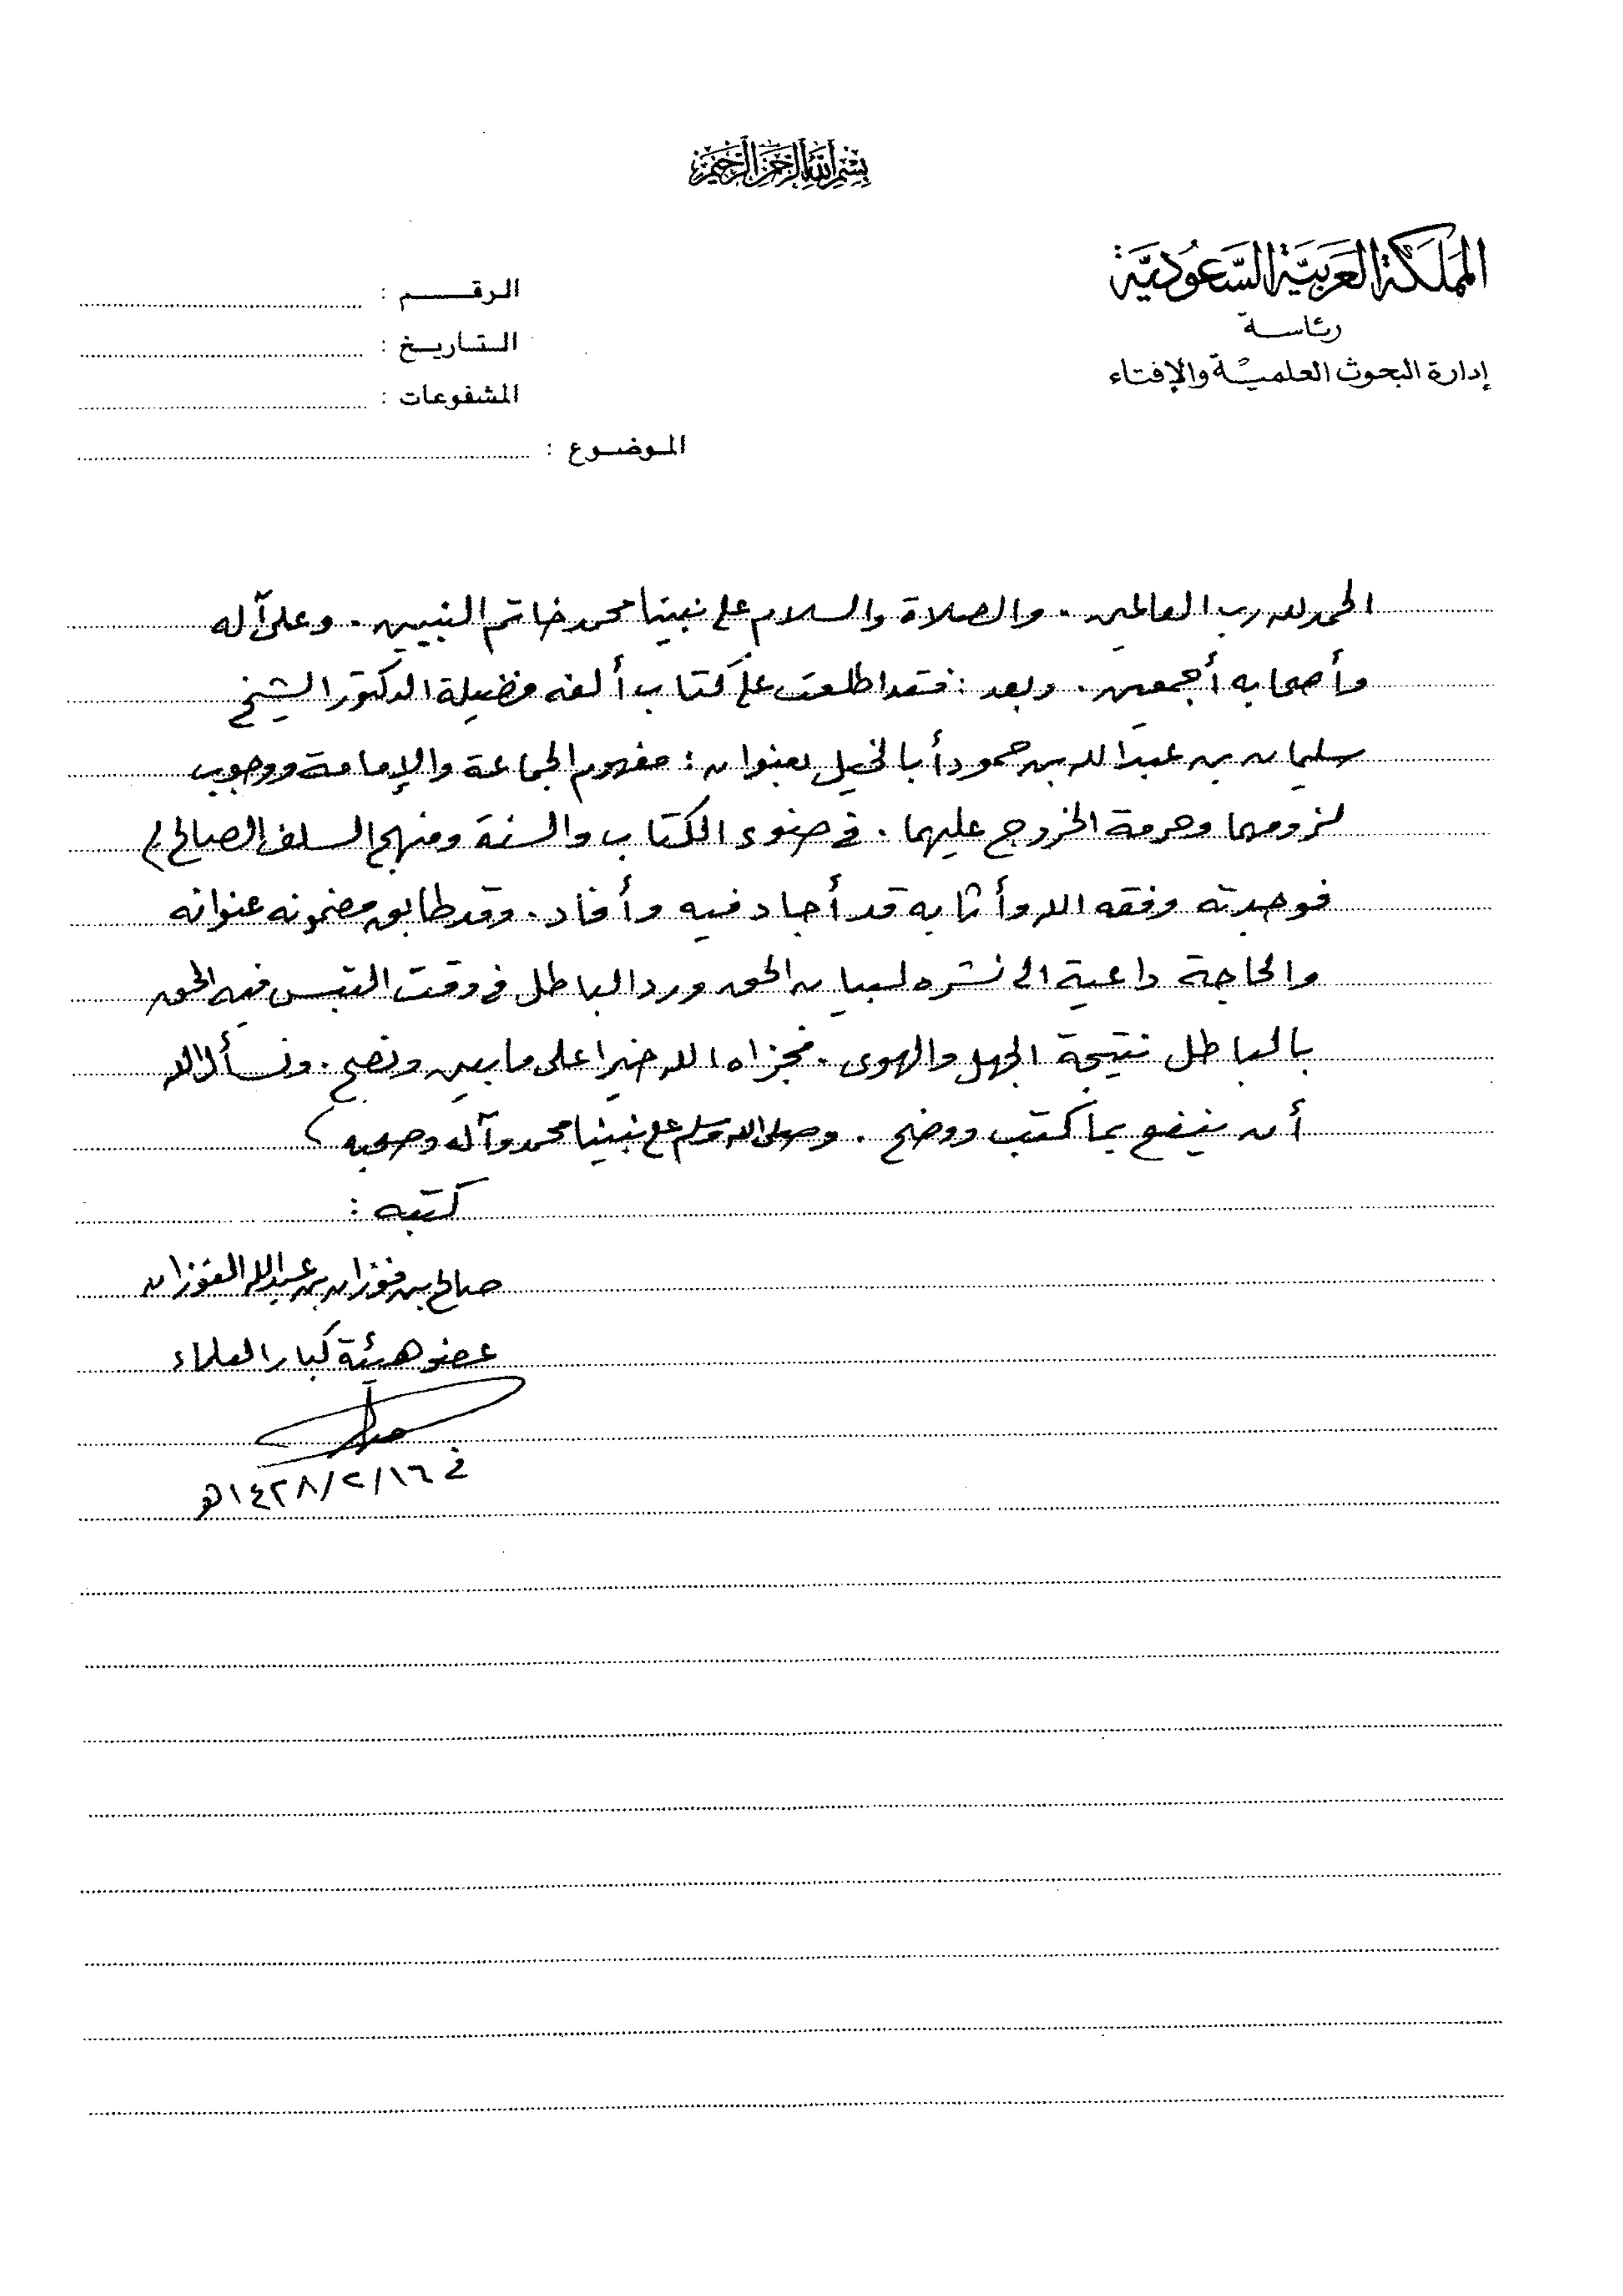 بسم الله الرحمن الرحيم
المملكة العربية السعودية
رئاسة
إدارة البحوث العلمية والإفتاء
الرقم :
التاريخ :
المشفوعات :
الموضوع :
الحمد لله رب العالمين . والصلاة والسلام على نبينا محمد خاتم النبيين . وعلى آله
وأصحابه أجمعين . وبعد : فقد اطلعت على كتاب ألفه فضيلة الدكتور الشيخ
سليمان بن عبدالله بن حمود أبا الخيل بعنوان : مفهوم الجماعة والإمامة ووجوب
لزومهما وحرمة الخروج عليهما . في ضوء الكتاب والسنة ومنهج السلف الصالح /
فوجدته وفقه الله وأثابه قد أجاد فيه وأفاد . وقد طابق مضمونه عنوانه
والحاجة داعية الى نشره لبيان الحق ورد الباطل في وقت التبس فيه الحق
بالباطل نتيجة الجهل والهوى . فجزاه الله خيرا على ما بين ونصح . ونسأل الله
أن ينفع بما كتب ووضح . وصلى الله وسلم على نبينا محمد وآله وصحبه
كتبه :
صالح بن فوزان بن عبدالله الفوزان
عضو هيئة كبار العلماء
في ١٦/٢/١٤٢٨هـ